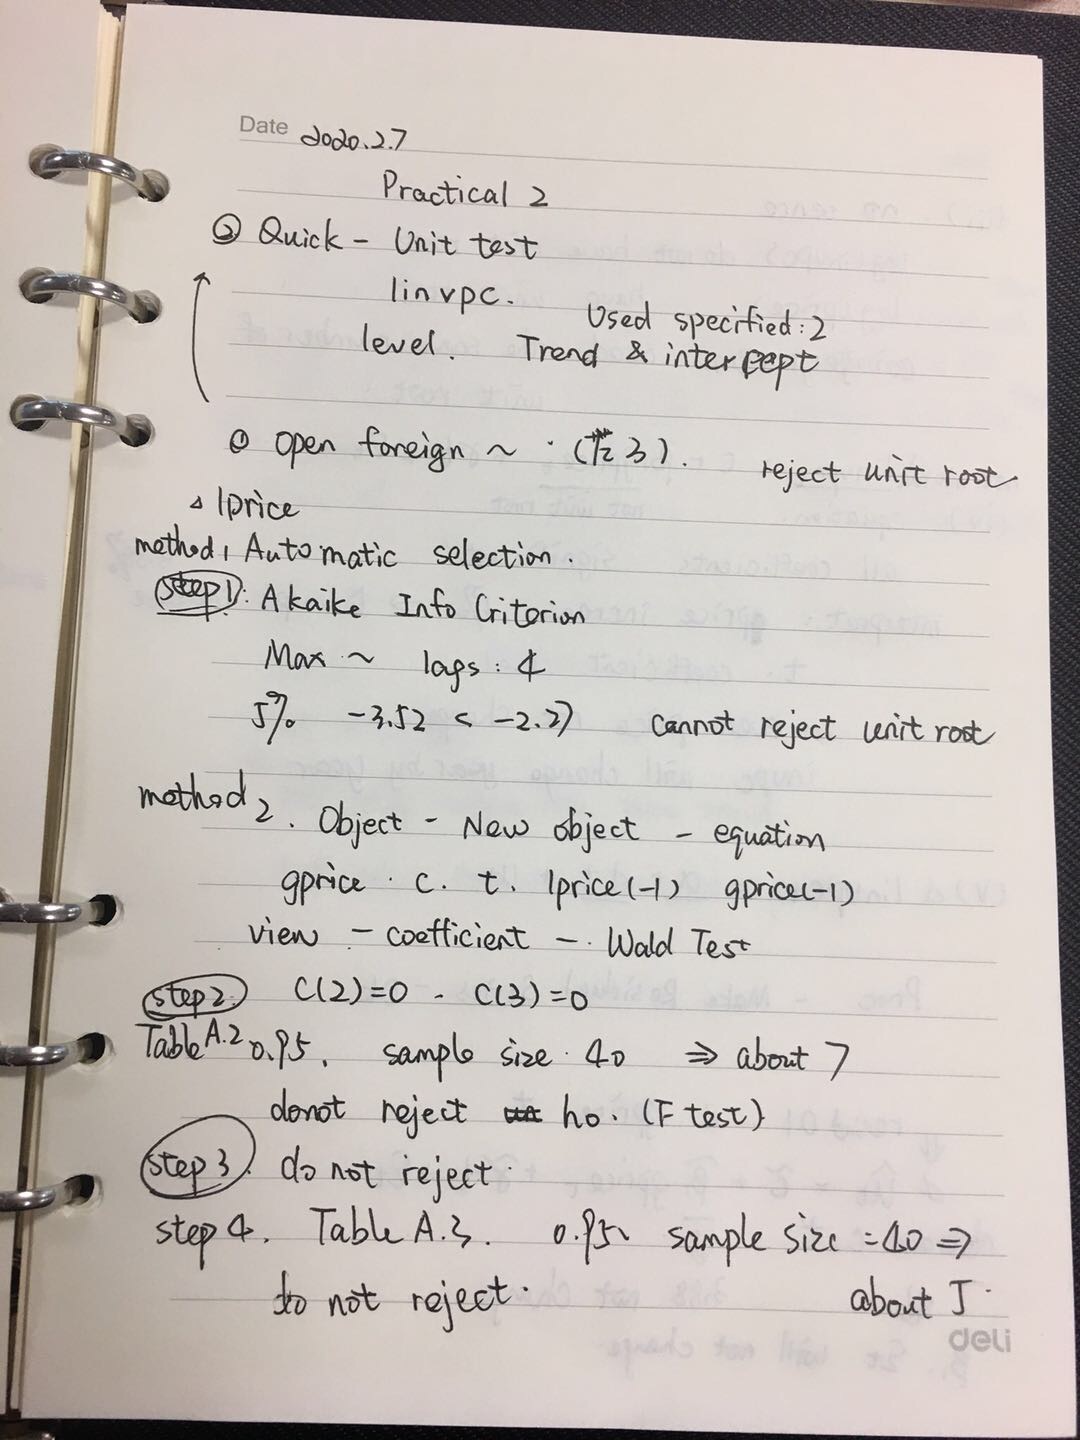 Date 2020.2.7
Practical 2
② Quick - Unit test
linvpc.
Used specified: 2
level. Trend & intercept
① open foreign ~ (在 3). reject unit root.
△ lprice
method 1 Automatic selection.
step 1: Akaike Info Criterion
Max ~ lags: 4
5% -3.52 < -2.27 cannot reject unit root
method 2. Object - New object - equation
gprice. c. t. lprice(-1) gprice(-1)
view - coefficient - Wald Test
step 2. C(2)=0 - C(3)=0
Table A.2 0.95. sample size. 40 ⇒ about 7
donot reject ho. (F test)
step 3. do not reject.
step 4. Table A.3. 0.95 sample size = 40 ⇒
do not reject. about 5.
deli